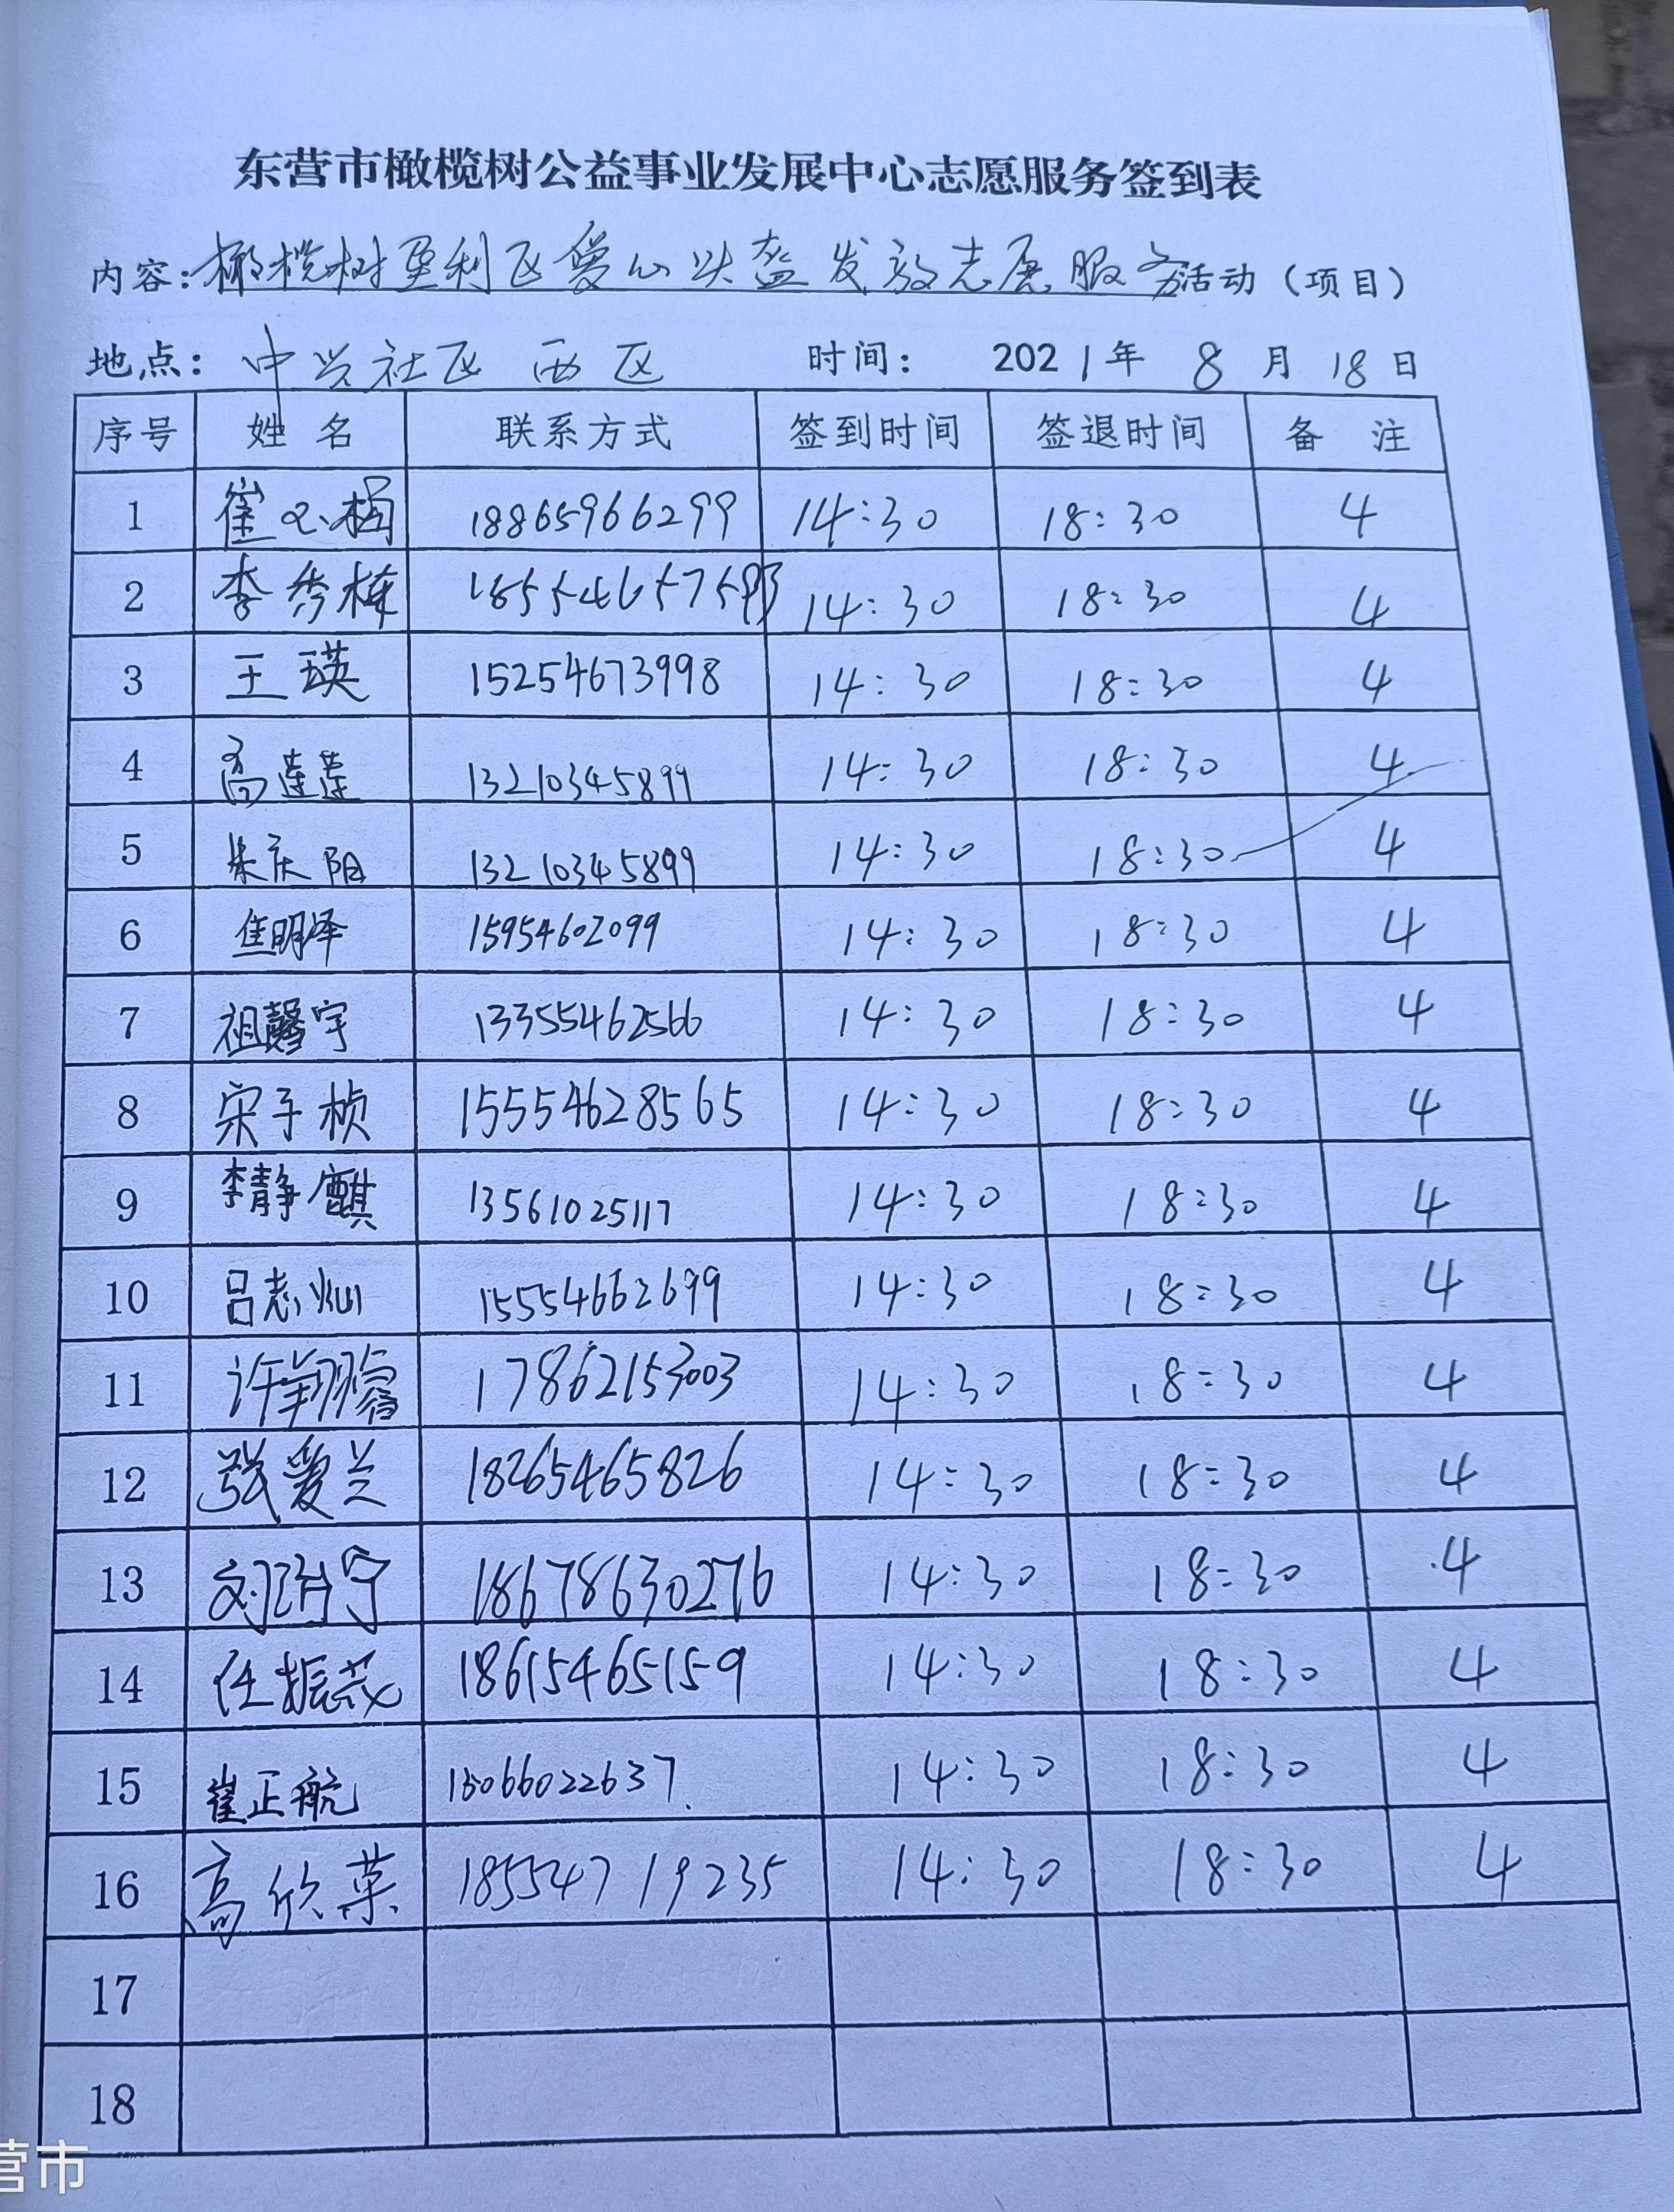 东营市橄榄树公益事业发展中心志愿服务签到表
内容：橄榄树垦利区爱心头盔发放志愿服务活动（项目）
地点：中兴社区西区 时间： 2021年 8月 18日
序号 姓名 联系方式 签到时间 签退时间 备注
1 崔 18865966299 14:30 18:30 4
2 李秀梅 14:30 18:30 4
3 王瑛 15254673998 14:30 18:30 4
4 高莲莲 13210345899 14:30 18:30 4
5 朱庆阳 13210345899 14:30 18:30 4
6 焦明泽 15954602099 14:30 18:30 4
7 祖馨宇 13355462566 14:30 18:30 4
8 宋子桢 15554628565 14:30 18:30 4
9 李静麒 13561025117 14:30 18:30 4
10 吕志灿 15554662699 14:30 18:30 4
11 许翔睿 17862153003 14:30 18:30 4
12 张爱兰 18265465826 14:30 18:30 4
13 刘 宁 18678630276 14:30 18:30 4
14 任振茂 18615465159 14:30 18:30 4
15 崔正航 15066022637 14:30 18:30 4
16 高欣 18554719235 14:30 18:30 4
17
18
营市